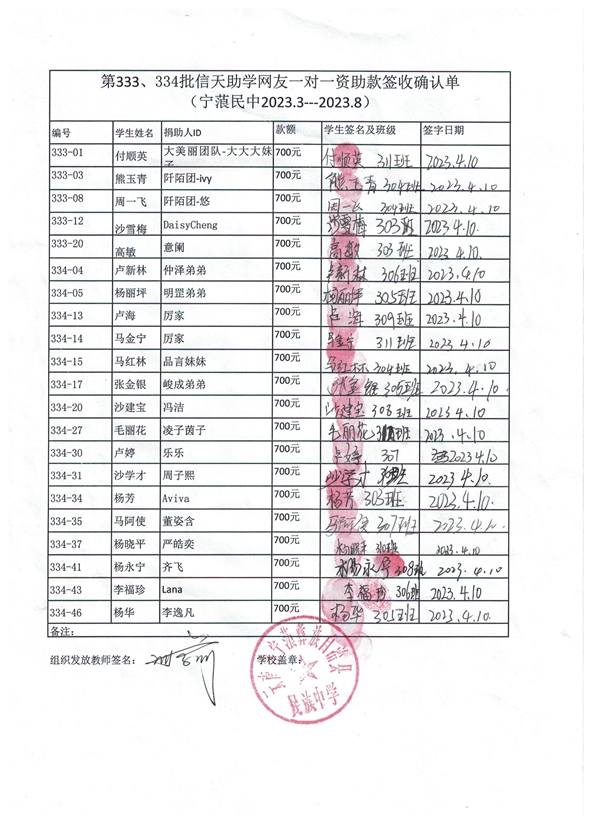 第333、334批信天助学网友一对一资助款签收确认单
（宁蒗民中2023.3---2023.8）
编号 学生姓名 捐助人ID 款额 学生签名及班级 签字日期
333-01 付顺英 大美丽团队-大大大妹子 700元 付顺英 311班 2023.4.10
333-03 熊玉青 阡陌团-ivy 700元 熊玉青 304班 2023.4.10
333-08 周一飞 阡陌团-悠 700元 周一飞 304班 2023.4.10
333-12 沙雪梅 DaisyCheng 700元 沙雪梅 303班 2023.4.10
333-20 高敏 意阑 700元 高敏 303班 2023.4.10
334-04 卢新林 仲泽弟弟 700元 卢新林 306班 2023.4.10
334-05 杨丽坪 明罡弟弟 700元 杨丽坪 305班 2023.4.10
334-13 卢海 厉家 700元 卢海 309班 2023.4.10
334-14 马金宁 厉家 700元 马金宁 311班 2023.4.10
334-15 马红林 品言妹妹 700元 马红林 304班 2023.4.10
334-17 张金银 峻成弟弟 700元 张金银 305班 2023.4.10
334-20 沙建宝 冯洁 700元 沙建宝 308班 2023.4.10
334-27 毛丽花 凌子茵子 700元 毛丽花 班 2023.4.10
334-30 卢婷 乐乐 700元 卢婷 307 2023.4.10
334-31 沙学才 周子熙 700元 沙学才 班 2023.4.10
334-34 杨芳 Aviva 700元 杨芳 303班 2023.4.10
334-35 马阿使 董姿含 700元 马阿使 307班 2023.4.10
334-37 杨晓平 严皓奕 700元 杨晓平 310班 2023.4.10
334-41 杨永宁 齐飞 700元 杨永宁 308班 2023.4.10
334-43 李福珍 Lana 700元 李福珍 306班 2023.4.10
334-46 杨华 李逸凡 700元 杨华 305班 2023.4.10
备注：
组织发放教师签名： 学校盖章：
云南省宁蒗彝族自治县
民族中学